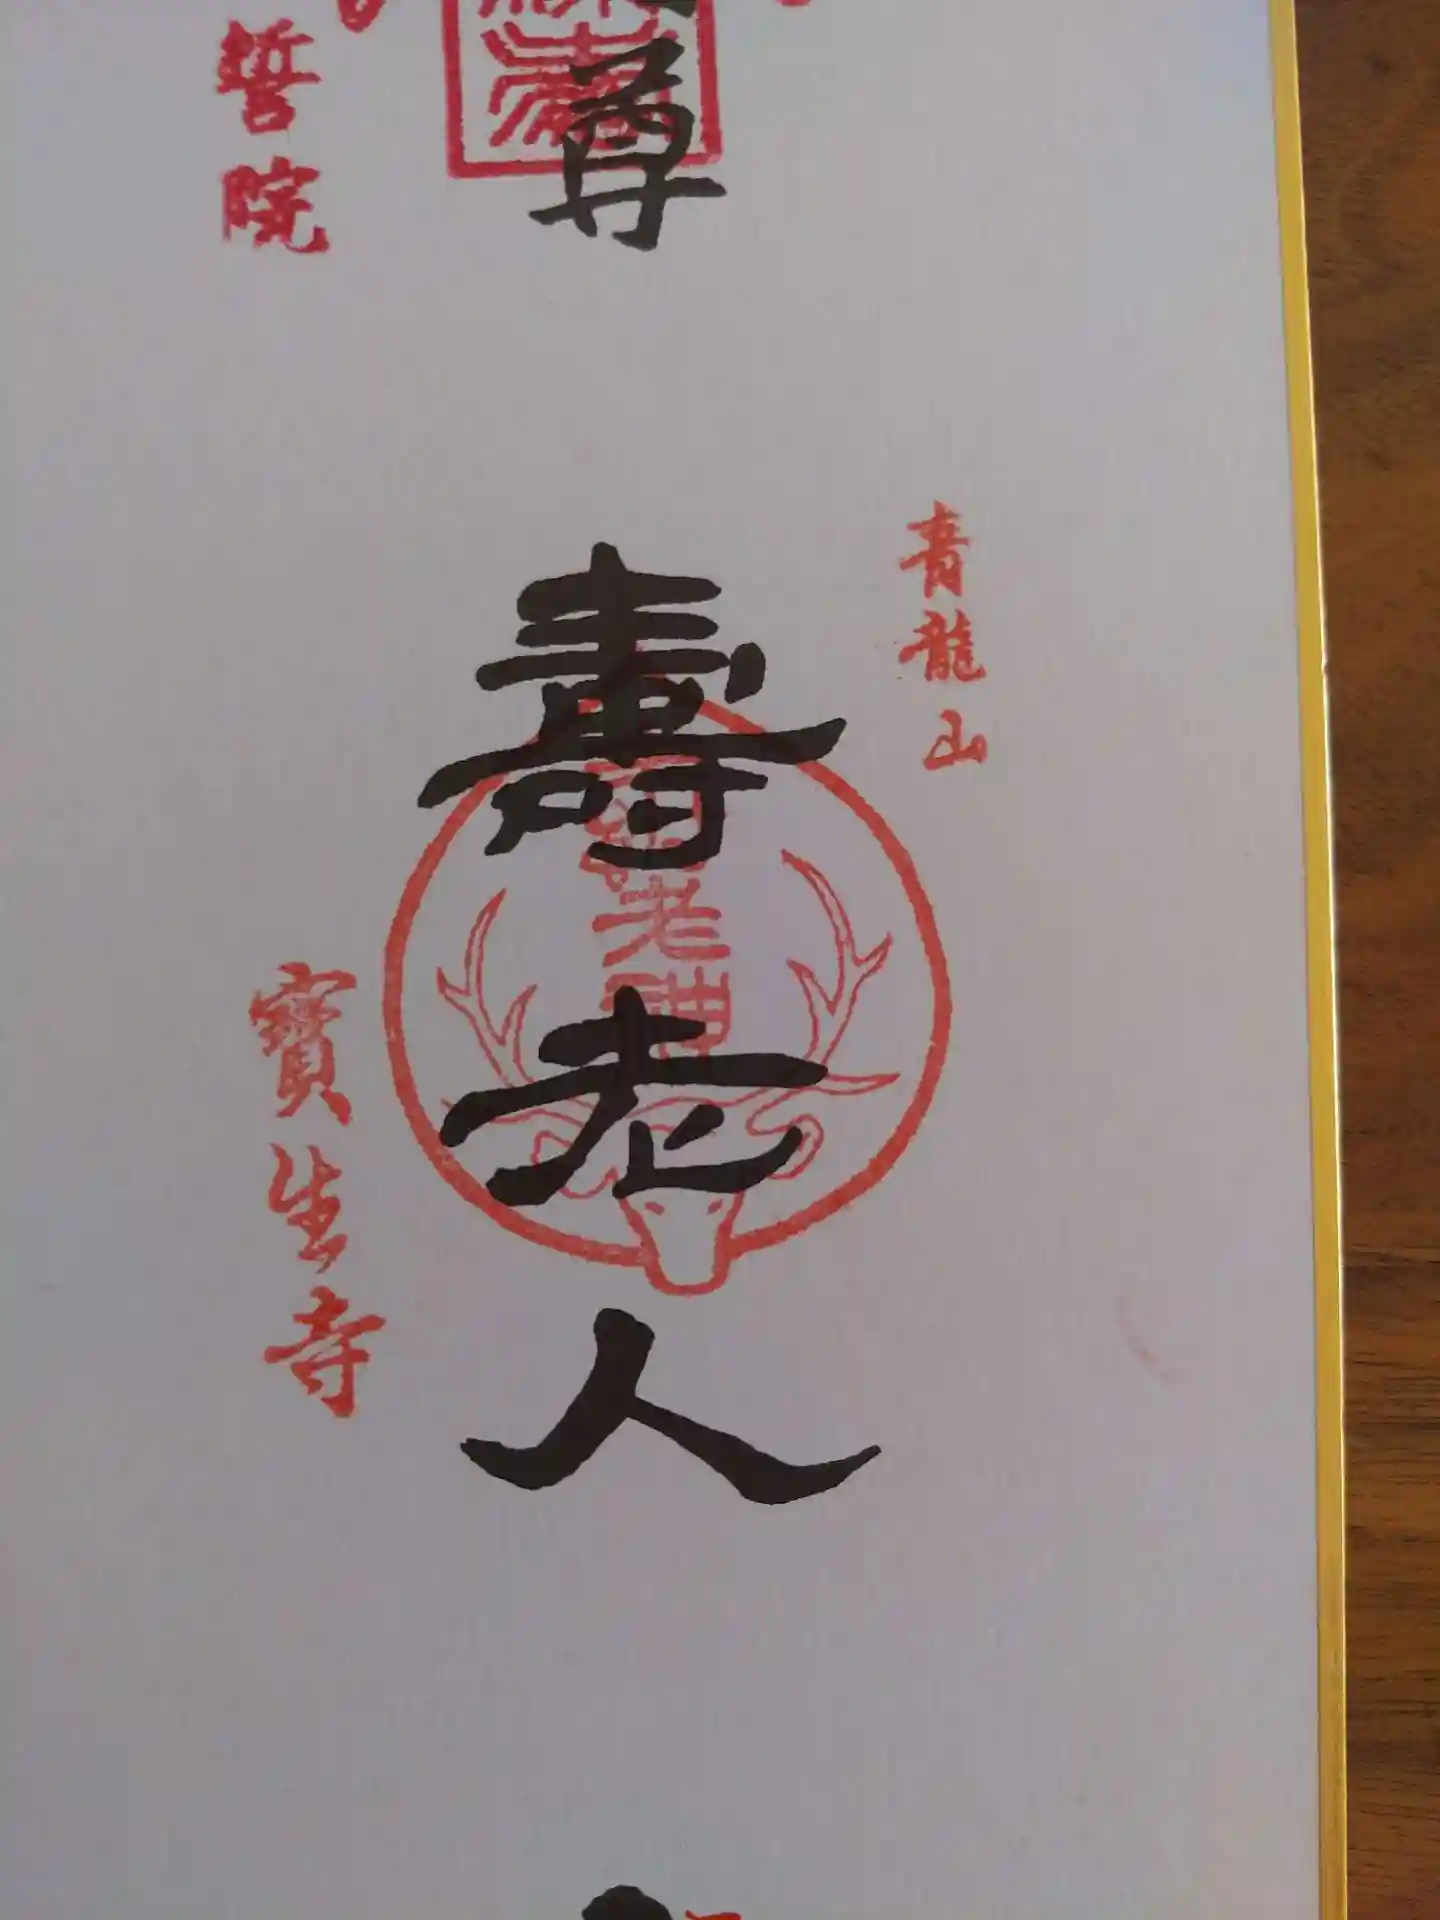 尊
誓院
青龍山
壽老人
老神
寶生寺